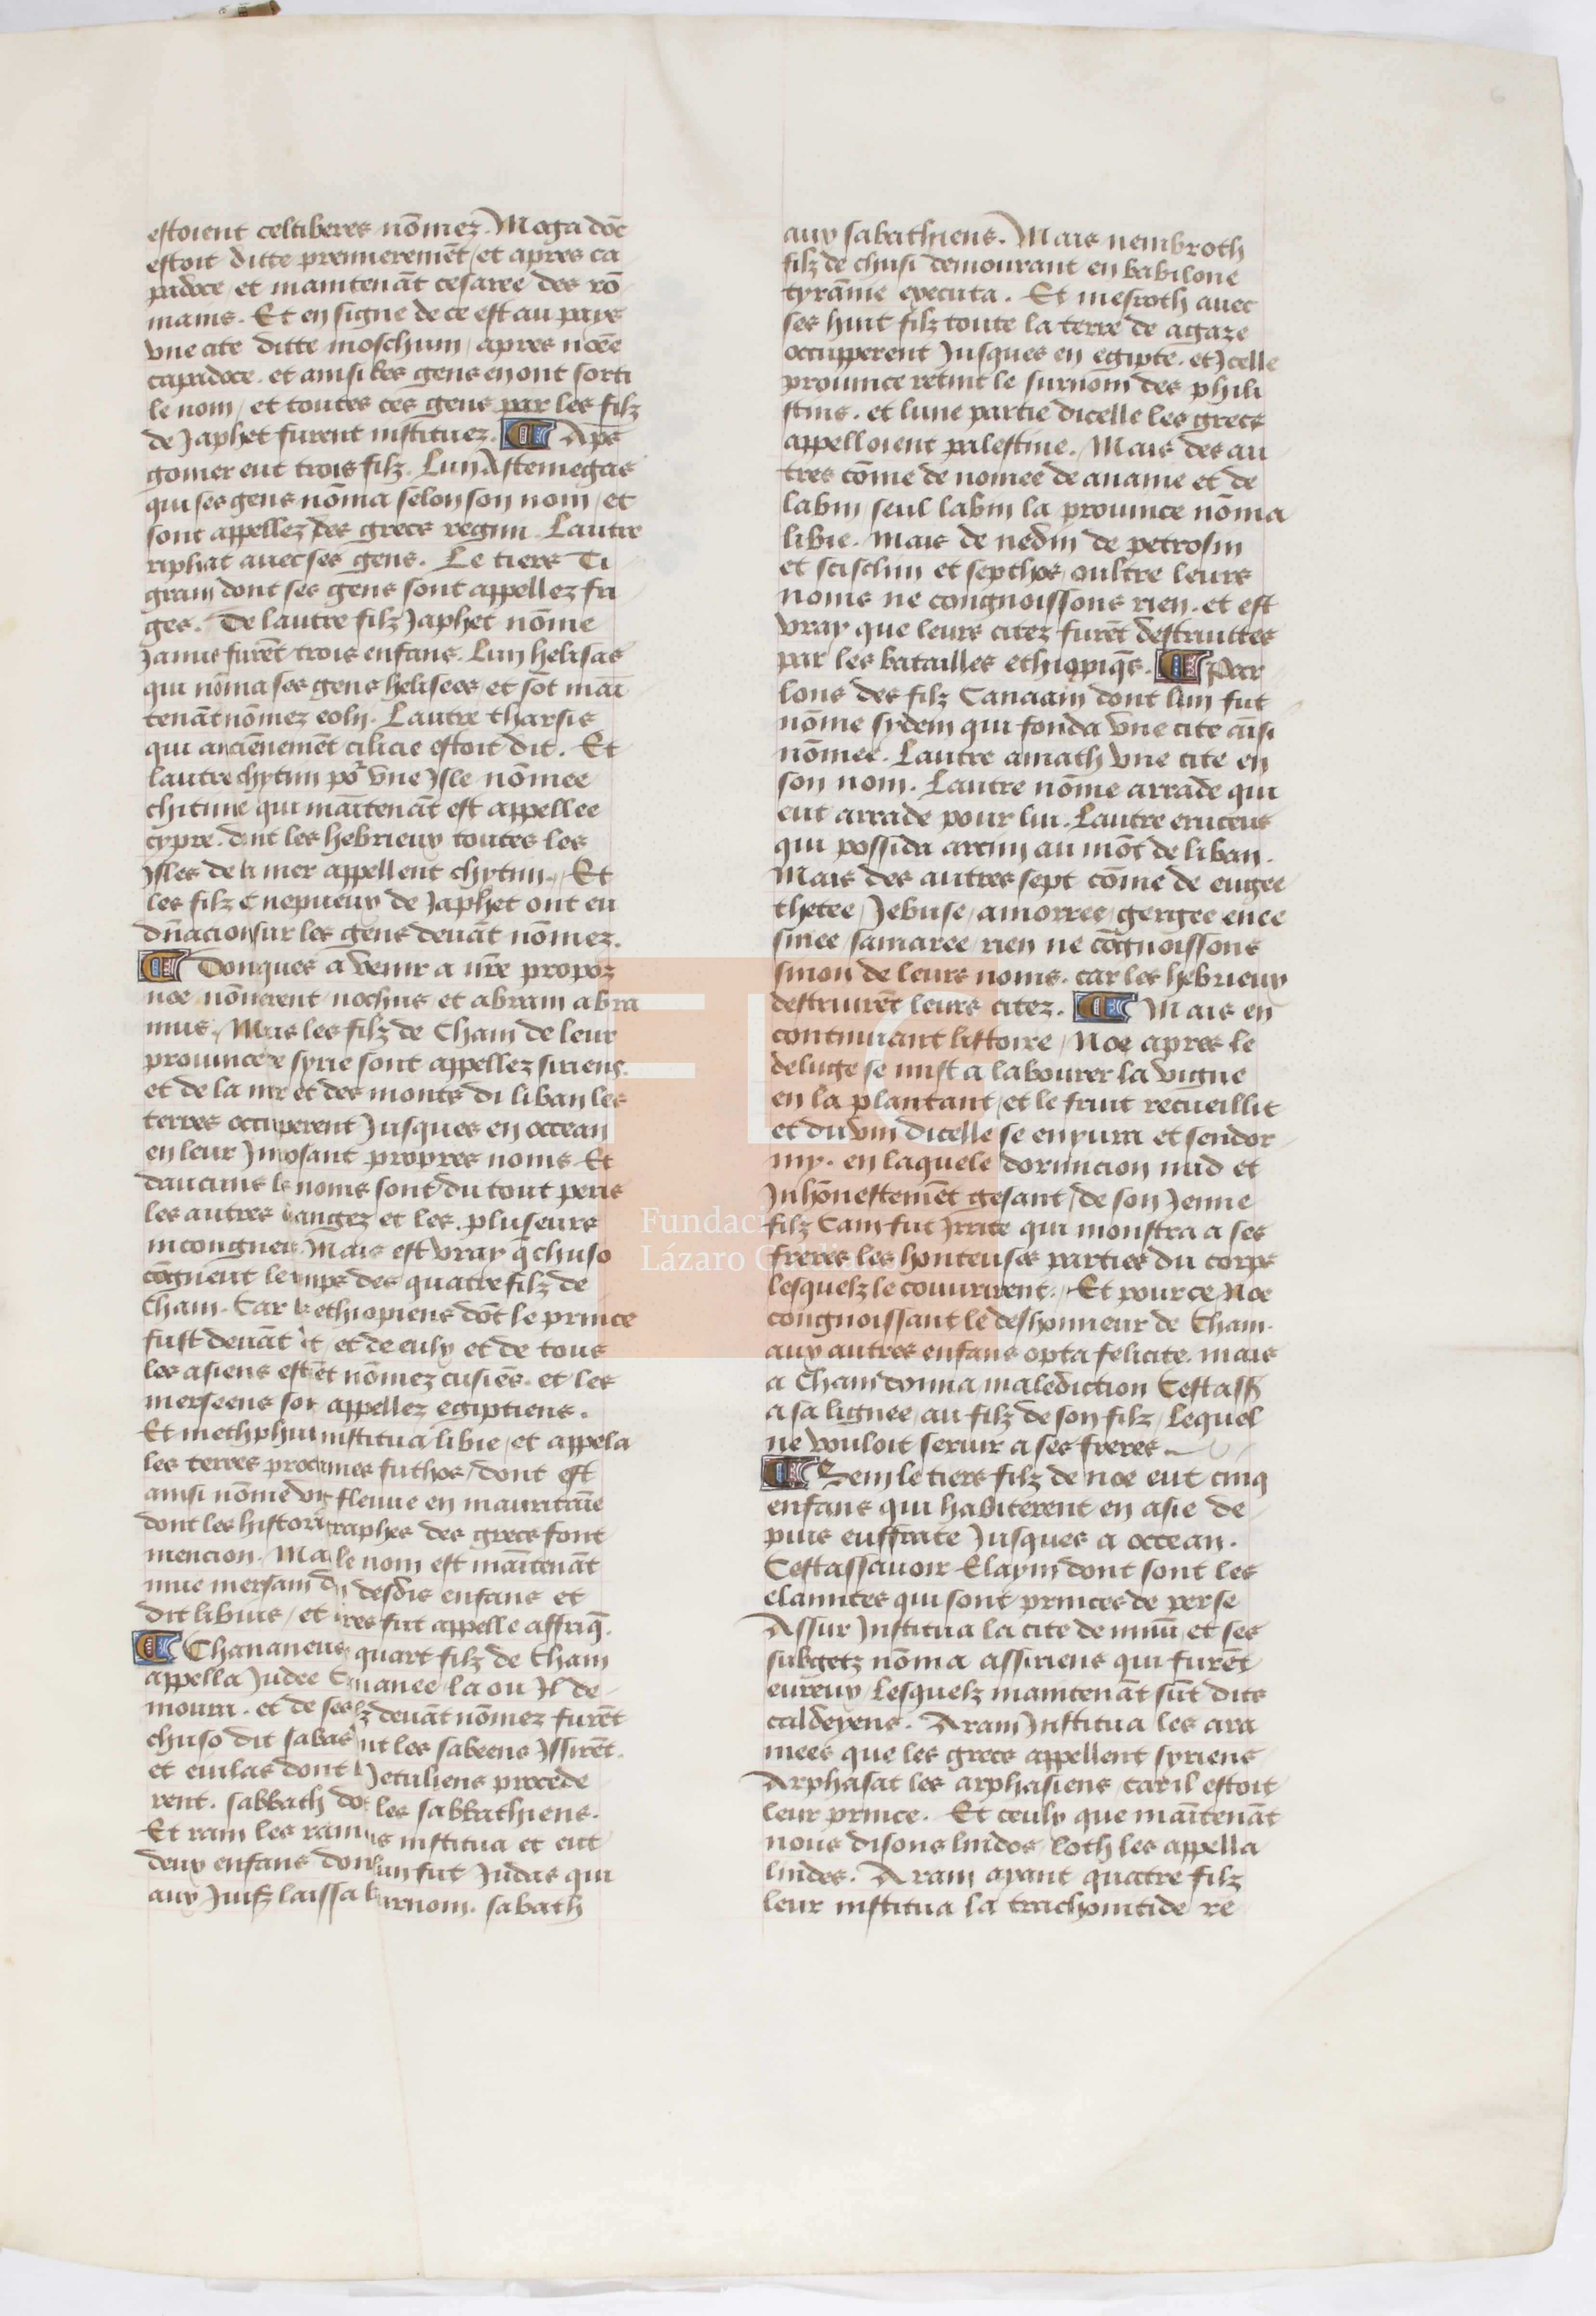 estoient celtiberes nōmez. Moga dōc
estoit ditte premieremēt / et apres ca
padoce / et maintenāt cesaree des rō
mains. Et en signe de ce est au pays
vne cite ditte moschum / apres nōee
capadoce. et ainsi les gens en ont sorti
le nom / et toutes ces gens par les filz
de Japhet furent instituez. Aps
gomer eut trois filz. Lun Astemegas
qui ses gens nōma selon son nom / et
sont appellez des grecs regini. Lautre
riphat auec ses gens. Le tiers Ti
gram dont ses gens sont appellez fri
ges. De lautre filz Japhet nōme
Janus furēt trois enfans. Lun helisas
qui nōma ses gens heliseos / et sōt mai
tenāt nōmez eoly. Lautre tharsis
qui anciēnemēt cilicie estoit dit. Et
lautre chytim po vne Jsle nōmee
chitime qui maītenāt est appellee
cypre. dont les hebrieux toutes les
Jsles de la mer appellent chytim. Et
les filz et nepueux de Japhet ont eu
dn̄acion sur les gens deuāt nōmez.
Donques a venir a nr̄e propoz
noe nōmerent nochus et abram abra
mus. Mais les filz de Cham de leur
prouince de syrie sont appellez siriens.
et de la mer et des monts di liban les
terres occuperent Jusques en occean
en leur Jmposant propres noms. Et
daucuns les noms sont du tout peris
les autres changez et les pluseurs
incongneus. Mais est vray q̄ chuso
cōgneut le temps des quatre filz de
Cham. Car les ethiopiens dōt le prince
fust deuāt dit, et de eulx et de tous
les asiens estoiēt nōmez cusiēs. et les
merseens sont appellez egiptiens.
Et methphuu institua libie / et appela
les terres prochaines futhos / dont est
ainsi nōme vng fleuue en mauritaīe
dont les historiographes des grecs font
mencion. Mais le nom est maītenāt
mue mersam desdis enfans et
dit libius / et apres fut appelle affriq̄.
Chananeus quart filz de Cham
appella Judee Chananee la ou Jl de
moura. et de ses filz deuāt nōmez furēt
chuso dit sabas dont les sabeens Jssirēt.
et euilas dont les Jetuliens procede
rent. sabbath dont les sabbathiens.
Et ram les ramus institua et eut
deux enfans dont lun fut Judas qui
aux Juifz laissa surnom. sabath
aux sabathiens. Mais nembroth
filz de chusi demourant en babilone
tyrāmie executa. Et mesroth auec
ses huit filz toute la terre de agaze
occupperent Jusques en egipte. et Jcelle
prouince retint le surnom des phili
stins. et lune partie dicelle les grecs
appelloient palestine. Mais des au
tres cōme de nomee de aname et de
labin / seul labin la prouince nōma
libie. Mais de nedin de petrosin
et scischin et septhos / oultre leurs
noms ne congnoissons rien. et est
vray que leurs citez furēt destruittes
par les batailles ethiopiqs̄. Par
lons des filz Canaam dont lun fut
nōme sydem qui fonda vne cite aīsi
nōmee. Lautre amath vne cite en
son nom. Lautre nōme arrade qui
eut arrade pour lui. Lautre eruceus
qui possida arcim au mōt de liban.
Mais des autres sept cōme de eugee
thetee / Jebuse / amorree / gergee enee
sinee / samaree / rien ne cōgnoissons
sinon de leurs noms. car les hebrieux
destruirēt leurs citez. Mais en
continuant listoire / Noe apres le
deluge se mist a labourer la vigne
en la plantant / et le fruit recueillit
et du vin dicelle se enyura et sendor
my. en laquele dormicion nud et
Jnhōnestemēt gesant / de son Jenne
filz Cam fut Jrrite qui monstra a ses
freres les honteuses parties du corps
lesquelz le couurirent. Et pource Noe
congnoissant le deshonneur de Cham.
aux autres enfans opta felicite. mais
a Cham donna malediction Cestass̄
a sa lignee / au filz de son filz / lequel
ne vouloit seruir a ses freres
Sem le tiers filz de noe eut cinq
enfans qui habiterent en asie de
puis euffrate Jusques a occean.
Cestassauoir Elaym dont sont les
elamites qui sont princes de perse
Assur Jnstitua la cite de niniu / et ses
subgetz nōma assiriens qui furēt
eureux / lesquelz maintenāt sūt dits
caldeyens. Aram Jnstitua les ara
mees que les grecs appellent syriens
Arphasat les arphasiens / car il estoit
leur prince. Et ceulx que maītenāt
nous disons lindos / loth les appella
lindes. Aram ayant quatre filz
leur institua la trachonitide re